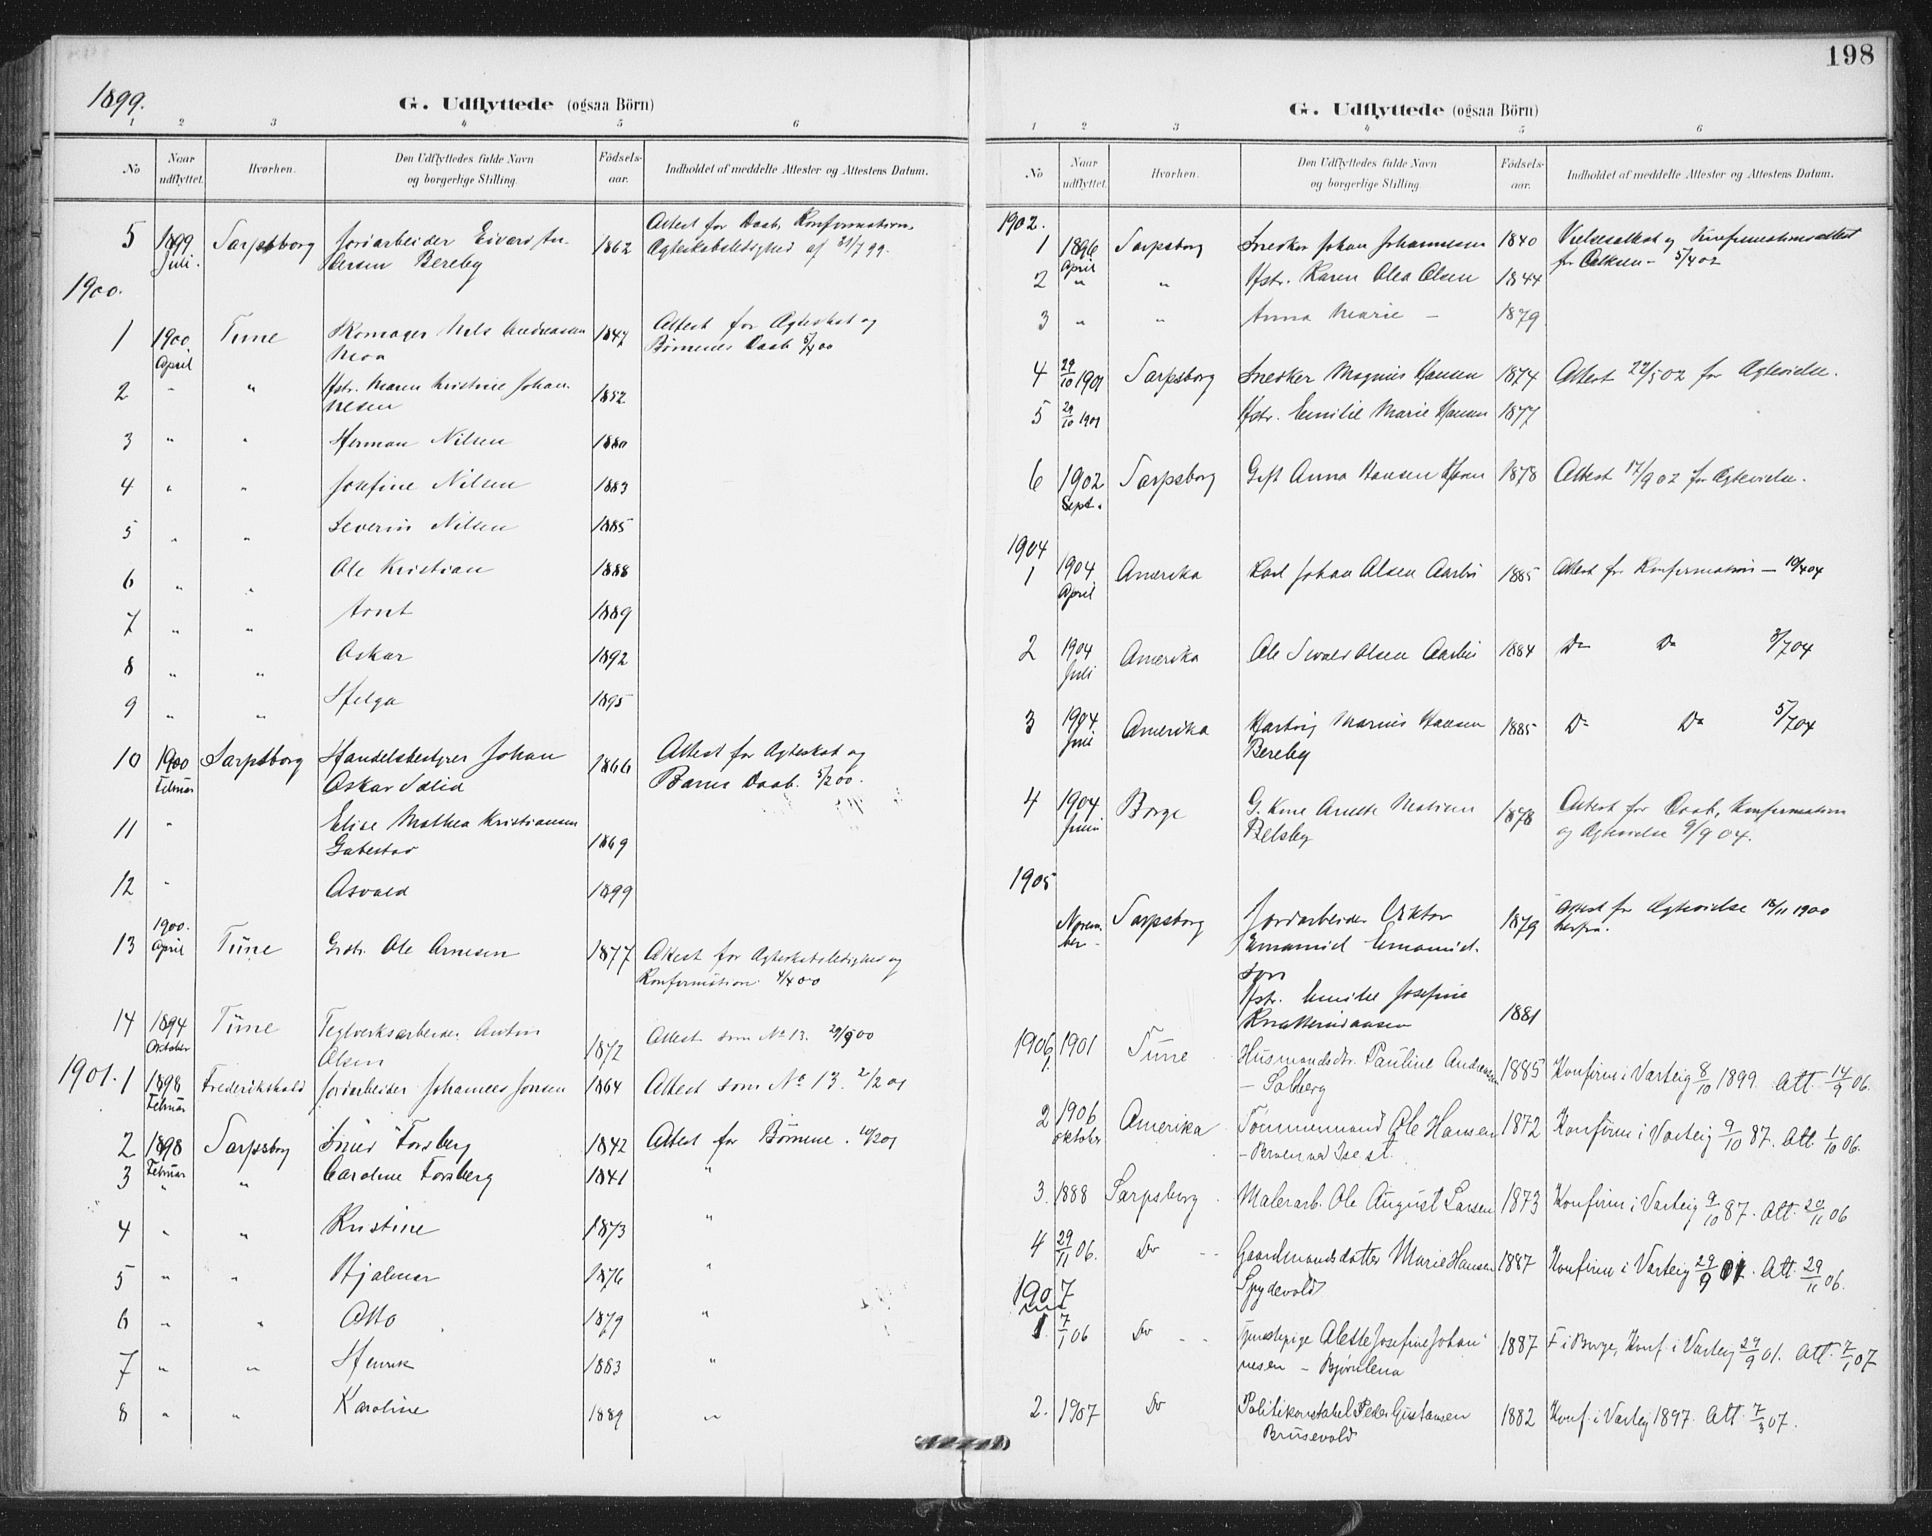 1899.
G. Udflyttede (ogsaa Börn)
1 2 3 4 5 6
No Naar udflyttet. Hvorhen. Den Udflyttedes fulde Navn og borgerlige Stilling. Födsels-aar. Indholdet af meddelte Attester og Attestens Datum.
5 1899 Juli. Sarpsborg Jordarbeider Eivard An-
dersen Bereby 1862 Attest for Daab, Konfirmation,
Ægteskabsledighed af 31/7 99.
1900.
1 1900 April Tune Skomager Nils Andreassen
Moa 1847 Attest for Ægteskab og
Børnenes Daab 5/4 00
2 " " Hstr. Maren Kristine Johan-
nesen 1852
3 " " Herman Nilsen 1880
4 " " Josefine Nilsen 1883
5 " " Severin Nilsen 1885
6 " " Ole Kristian 1888
7 " " Arnt 1889
8 " " Oskar 1892
9 " " Helga 1895
10 1900 Februar Sarpsborg Handelsbestyrer Johan
Oskar Solid 1866 Attest for Ægteskab og
Barns Daab. 5/2 00.
11 " Elise Mathea Kristiansen
Gatestad 1869
12 " Asvald 1899
13 1900. April Tune Grdbr. Ole Arnesen 1877 Attest for Ægteskabsledighed og
Konfirmation 4/4 00
14 1894 Oktober Tune Teglverksarbeider Anton
Olsen 1872 Attest som No 13. 29/9 00
1901. 1 1898 Februar Frederikshald Jordarbeider Johannes Jensen 1864 Attest som No 13. 2/2 01
2 1898 Februar Sarpsborg Smed Forsberg 1842 Attest for Børnene. 10/2 01
3 " " Caroline Forsberg 1841 "
4 " " Kristine 1873 "
5 " " Hjalmar 1876 "
6 " " Otto 1879 "
7 " " Henrik 1883 "
8 " " Karoline 1889 "
198
G. Udflyttede (ogsaa Börn)
1 2 3 4 5 6
No Naar udflyttet. Hvorhen. Den Udflyttedes fulde Navn og borgerlige Stilling. Födsels-aar. Indholdet af meddelte Attester og Attestens Datum.
1902.
1 1896 April Sarpsborg Snedker Johan Johannesen 1840 Vielsesattest og Konfirmationsattest
for 5/4 02
2 " " Hstr. Karen Olea Olsen 1844
3 " " Anna Marie — 1879
4 29/10 1901 Sarpsborg Snedker Magnus Hansen 1874 Attest 22/5 02 for Ægtevielse.
5 29/10 1901 Hstr. Emilie Marie Hansen 1877
6 1902 Sept. Sarpsborg Gift Anna Hansen 1878 Attest 17/9 02 for Ægtevielse.
1904
1 1904 April Amerika Karl Johan Olsen Aarbu 1885 Attest for Konfirmation — 10/4 04
2 1904 Juli Amerika Ole Sivald Olsen Aarbu 1884 Do Do 3/7 04
3 1904 Juli Amerika Hartvig Marius Hansen
Bereby 1885 Do Do 5/7 04
4 1904 Juni Borge G. Kone Mathisen
Belsby 1878 Attest for Daab, Konfirmation
og Ægtevielse 9/9 04.
1905
Novem-
ber - Sarpsborg Jordarbeider Viktor
Emanuel Emanuel-
son 1879 Attest for Ægtevielse 18/11 1900
herfra.
Hstr. Emilie Josefine
1881
1906. 1901 Tune Husmandsdtr. Pauline Andreasen
— Solberg 1885 Konfirm i Varteig 8/10 1899. Att. 14/9 06.
2 1906 oktober Amerika Tømmermand Ole Hansen
— ved Ise st. 1872 Konfirm i Varteig 9/10 87. Att. 1/10 06.
3. 1888 Sarpsborg Malerarb. Ole August Larsen 1873 Konfirm i Varteig 9/10 87. Att. 20/11 06
4 29/11 06. Do - - Gaardmandsdatter Marie Hansen
Spydevold 1887 Konfirm i Varteig 29/9 01. Att. 29/11 06.
1907
1. 7/1 06 Do - - Tjenestepige Alette Josefine Johan-
nesen — Bjørnlena 1887 F i Borge, Konf. i Varteig 29/9 01. Att. 7/1 07
2. 1907 Do Politikonstabel Peder Gustavsen
Brusevold 1882 Konf. i Varteig 1897. Att. 7/3 07.